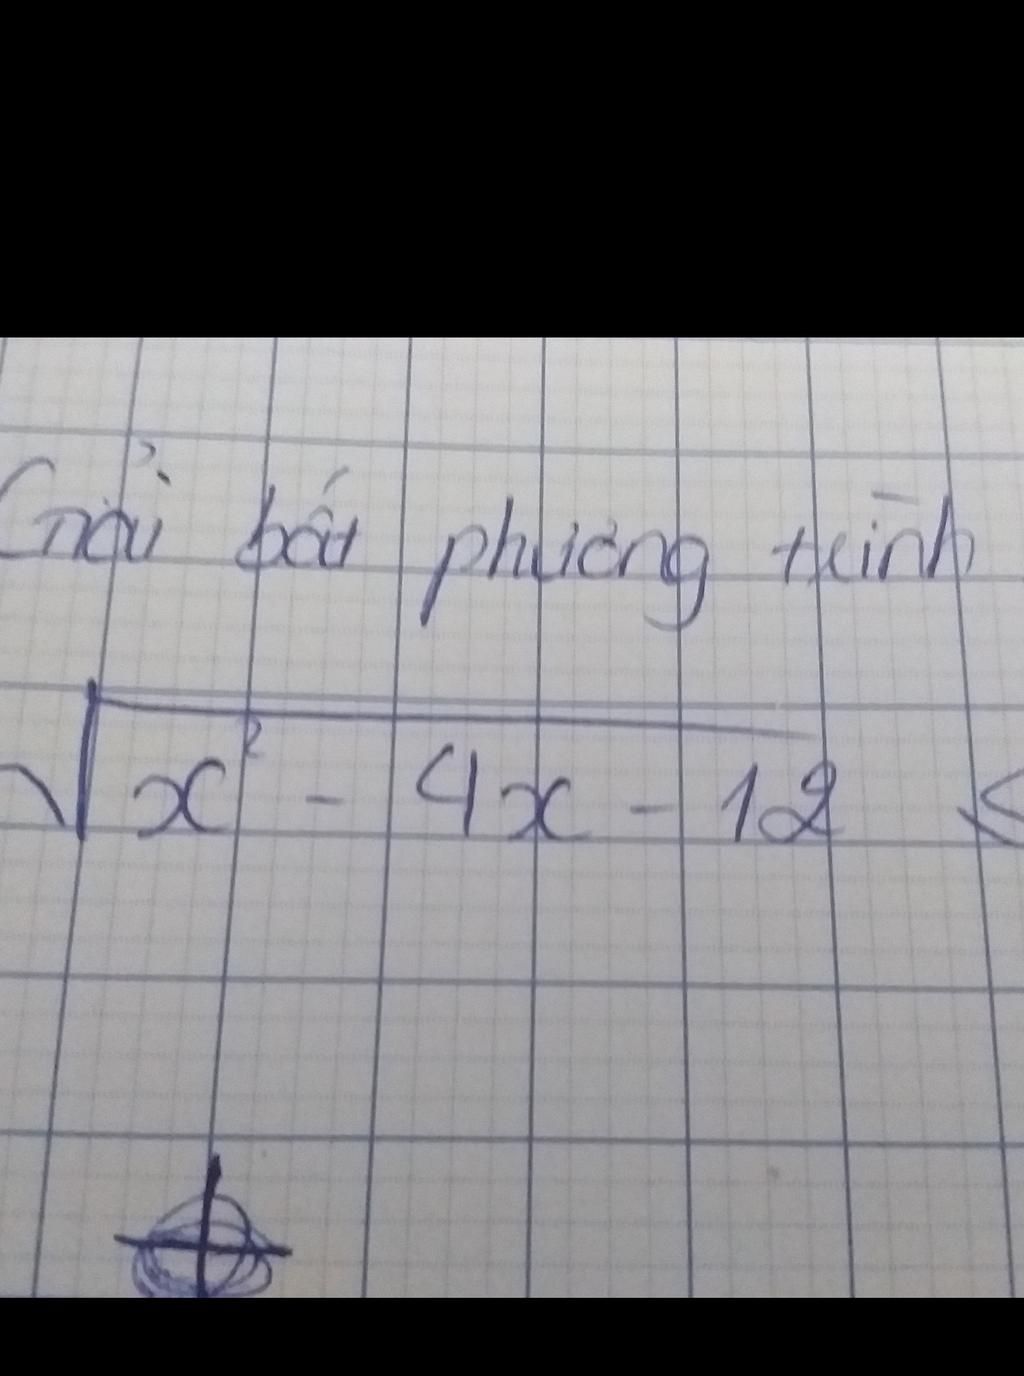 Giải bất phương trình
√x² - 4x - 12 ≤